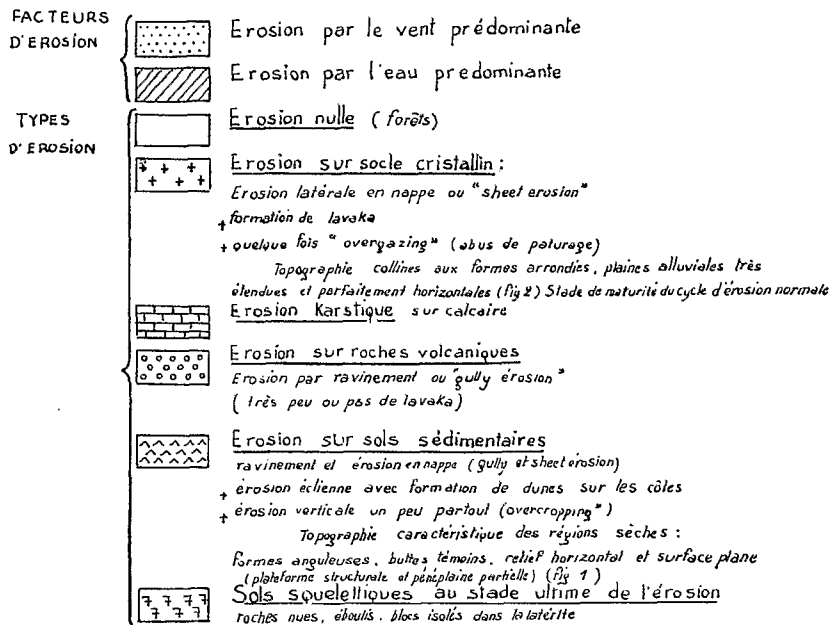 FACTEURS
D'EROSION
Erosion par le vent prédominante
Erosion par l'eau predominante
TYPES
D'EROSION
Erosion nulle (forêts)
Erosion sur socle cristallin :
Erosion latérale en nappe ou "sheet erosion"
+ formation de lavaka
+ quelque fois "overgazing" (abus de paturage)
Topographie collines aux formes arrondies, plaines alluviales très
étendues et parfaitement horizontales (fig 2) Stade de maturité du cycle d'érosion normale
Erosion Karstique sur calcaire
Erosion sur roches volcaniques
Erosion par ravinement ou "gully érosion"
(très peu ou pas de lavaka)
Erosion sur sols sédimentaires
ravinement et érosion en nappe (gully et sheet érosion)
+ érosion éclienne avec formation de dunes sur les côtes
+ érosion verticale un peu partout (overcropping")
Topographie caractéristique des régions sèches :
formes anguleuses, buttes témoins, relief horizontal et surface plane
(plateforme structurale et pénéplaine partielle) (fig 1)
Sols squelettiques au stade ultime de l'érosion
roches nues, éboulis, blocs isolés dans la latérite